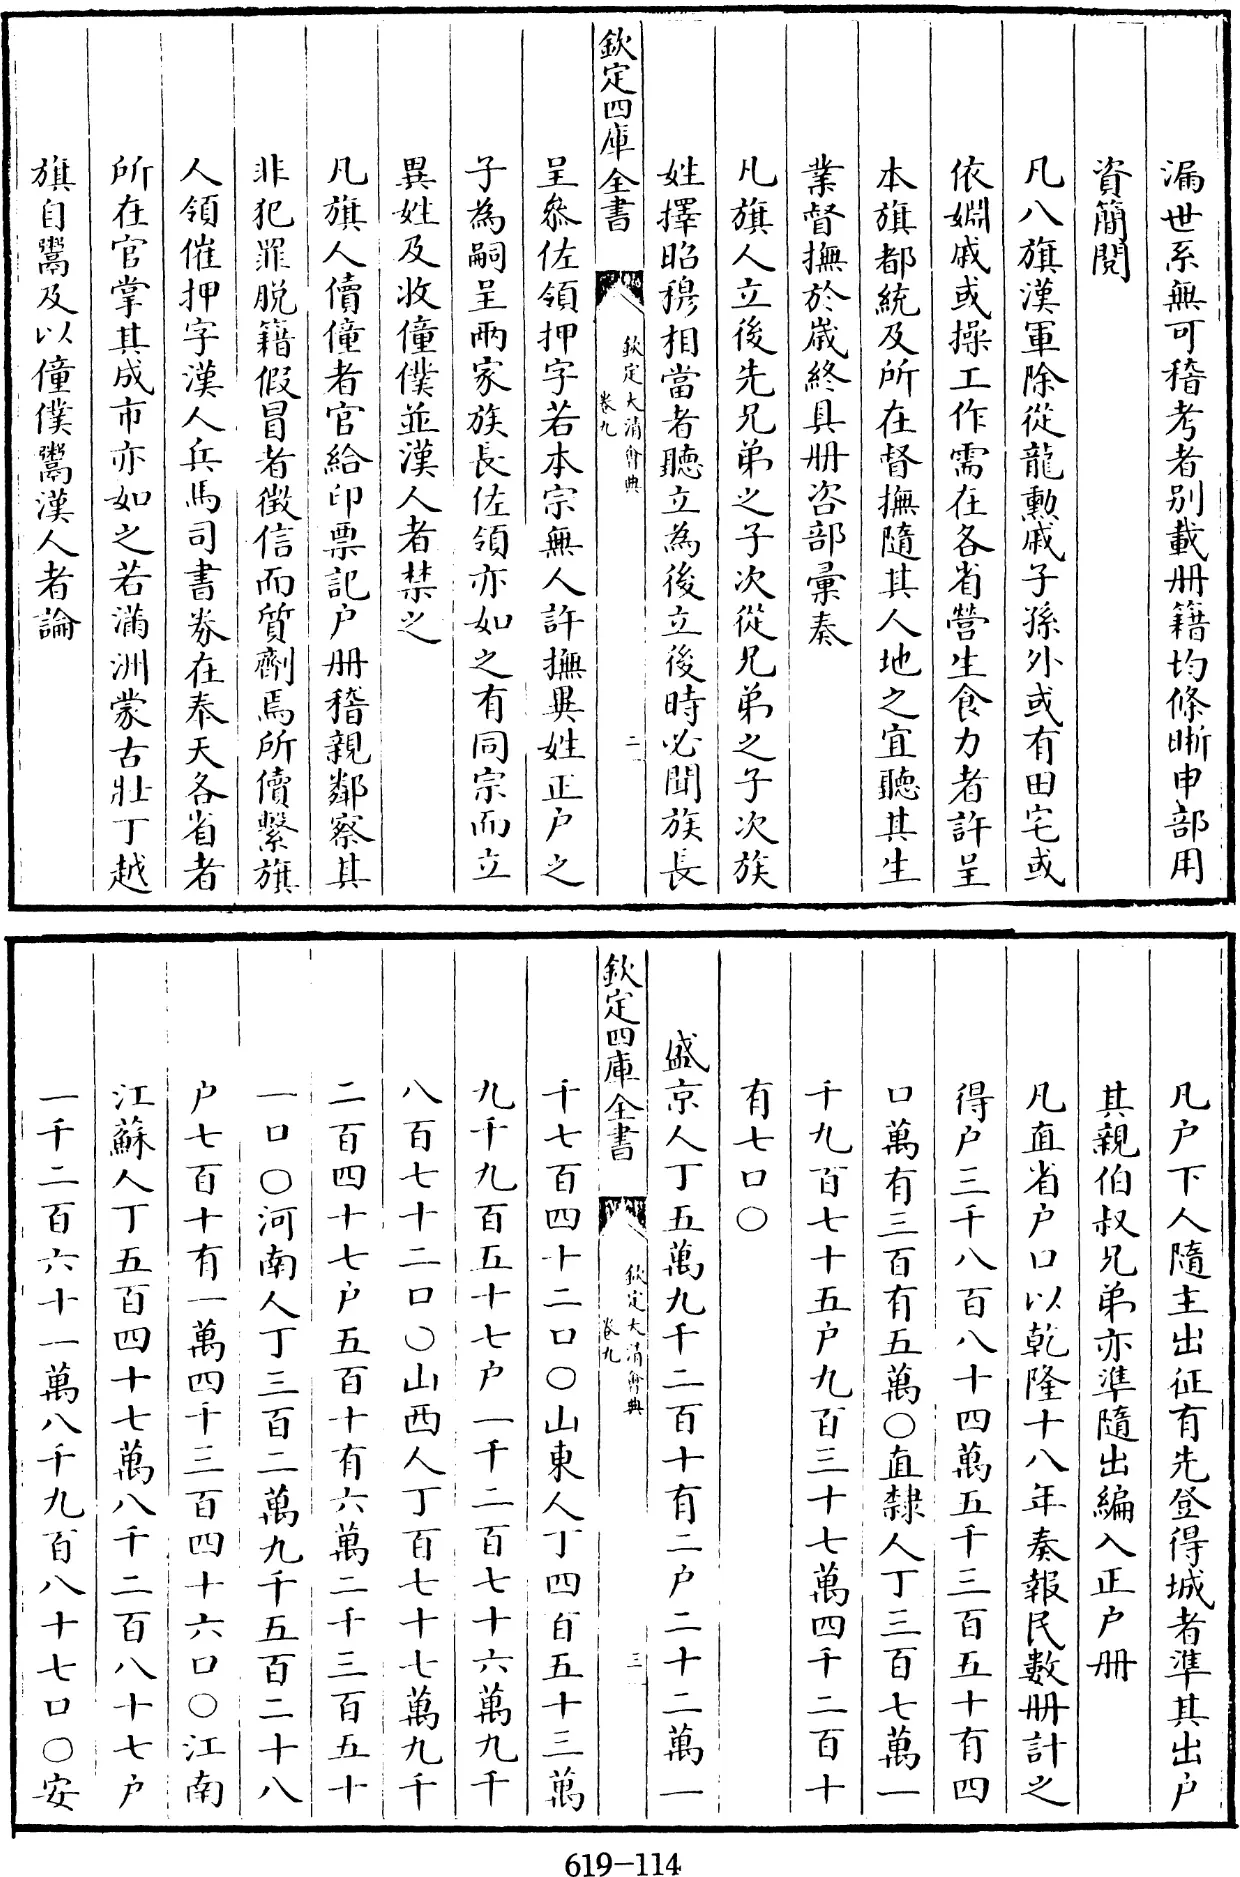 漏世系無可稽考者别載册籍均條晰申部用
資簡閱
凡八旗漢軍除從龍勲戚子孫外或有田宅或
依婣戚或操工作需在各省營生食力者許呈
本旗都統及所在督撫隨其人地之宜聽其生
業督撫於嵗終具册咨部彚奏
凡旗人立後先兄弟之子次從兄弟之子次族
姓擇昭穆相當者聽立為後立後時必聞族長
欽定四庫全書
欽定大清會典
卷九
二
呈叅佐領押字若本宗無人許撫異姓正户之
子為嗣呈兩家族長佐領亦如之有同宗而立
異姓及收僮僕並漢人者禁之
凡旗人儥僮者官給印票記户册稽親鄰察其
非犯罪脱籍假冒者徴信而質劑焉所儥繫旗
人領催押字漢人兵馬司書劵在奉天各省者
所在官掌其成市亦如之若滿洲蒙古壯丁越
旗自鬻及以僮僕鬻漢人者論
凡户下人隨主出征有先登得城者準其出户
其親伯叔兄弟亦準隨出編入正户册
凡直省户口以乾隆十八年奏報民數册計之
得户三千八百八十四萬五千三百五十有四
口萬有三百有五萬○直隸人丁三百七萬一
千九百七十五户九百三十七萬四千二百十
有七口○
盛京人丁五萬九千二百十有二户二十二萬一
欽定四庫全書
欽定大清會典
卷九
三
千七百四十二口○山東人丁四百五十三萬
九千九百五十七户一千二百七十六萬九千
八百七十二口○山西人丁百七十七萬九千
二百四十七户五百十有六萬二千三百五十
一口○河南人丁三百二萬九千五百二十八
户七百十有一萬四千三百四十六口○江南
江蘇人丁五百四十七萬八千二百八十七户
一千二百六十一萬八千九百八十七口○安
619-114